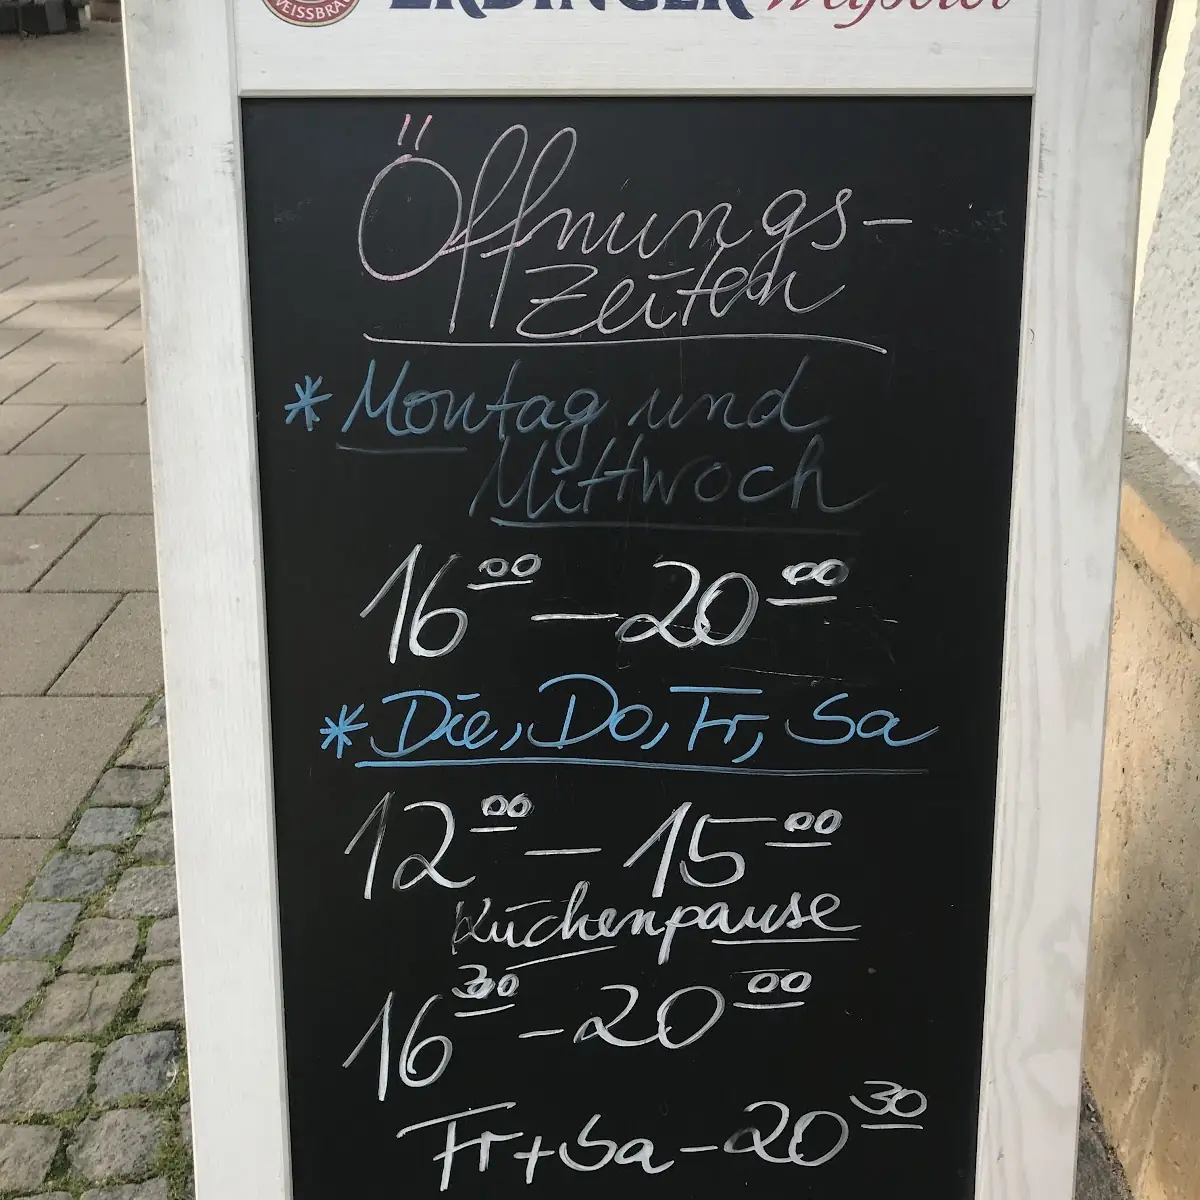 WEISSBRÄU
ERDINGER Weißbier
Öffnungs-
zeiten
* Montag und
Mittwoch
16 00 – 20 00
* Die, Do, Fr, Sa
12 00 – 15 00
Küchenpause
16 30 – 20 00
Fr + Sa – 20 30